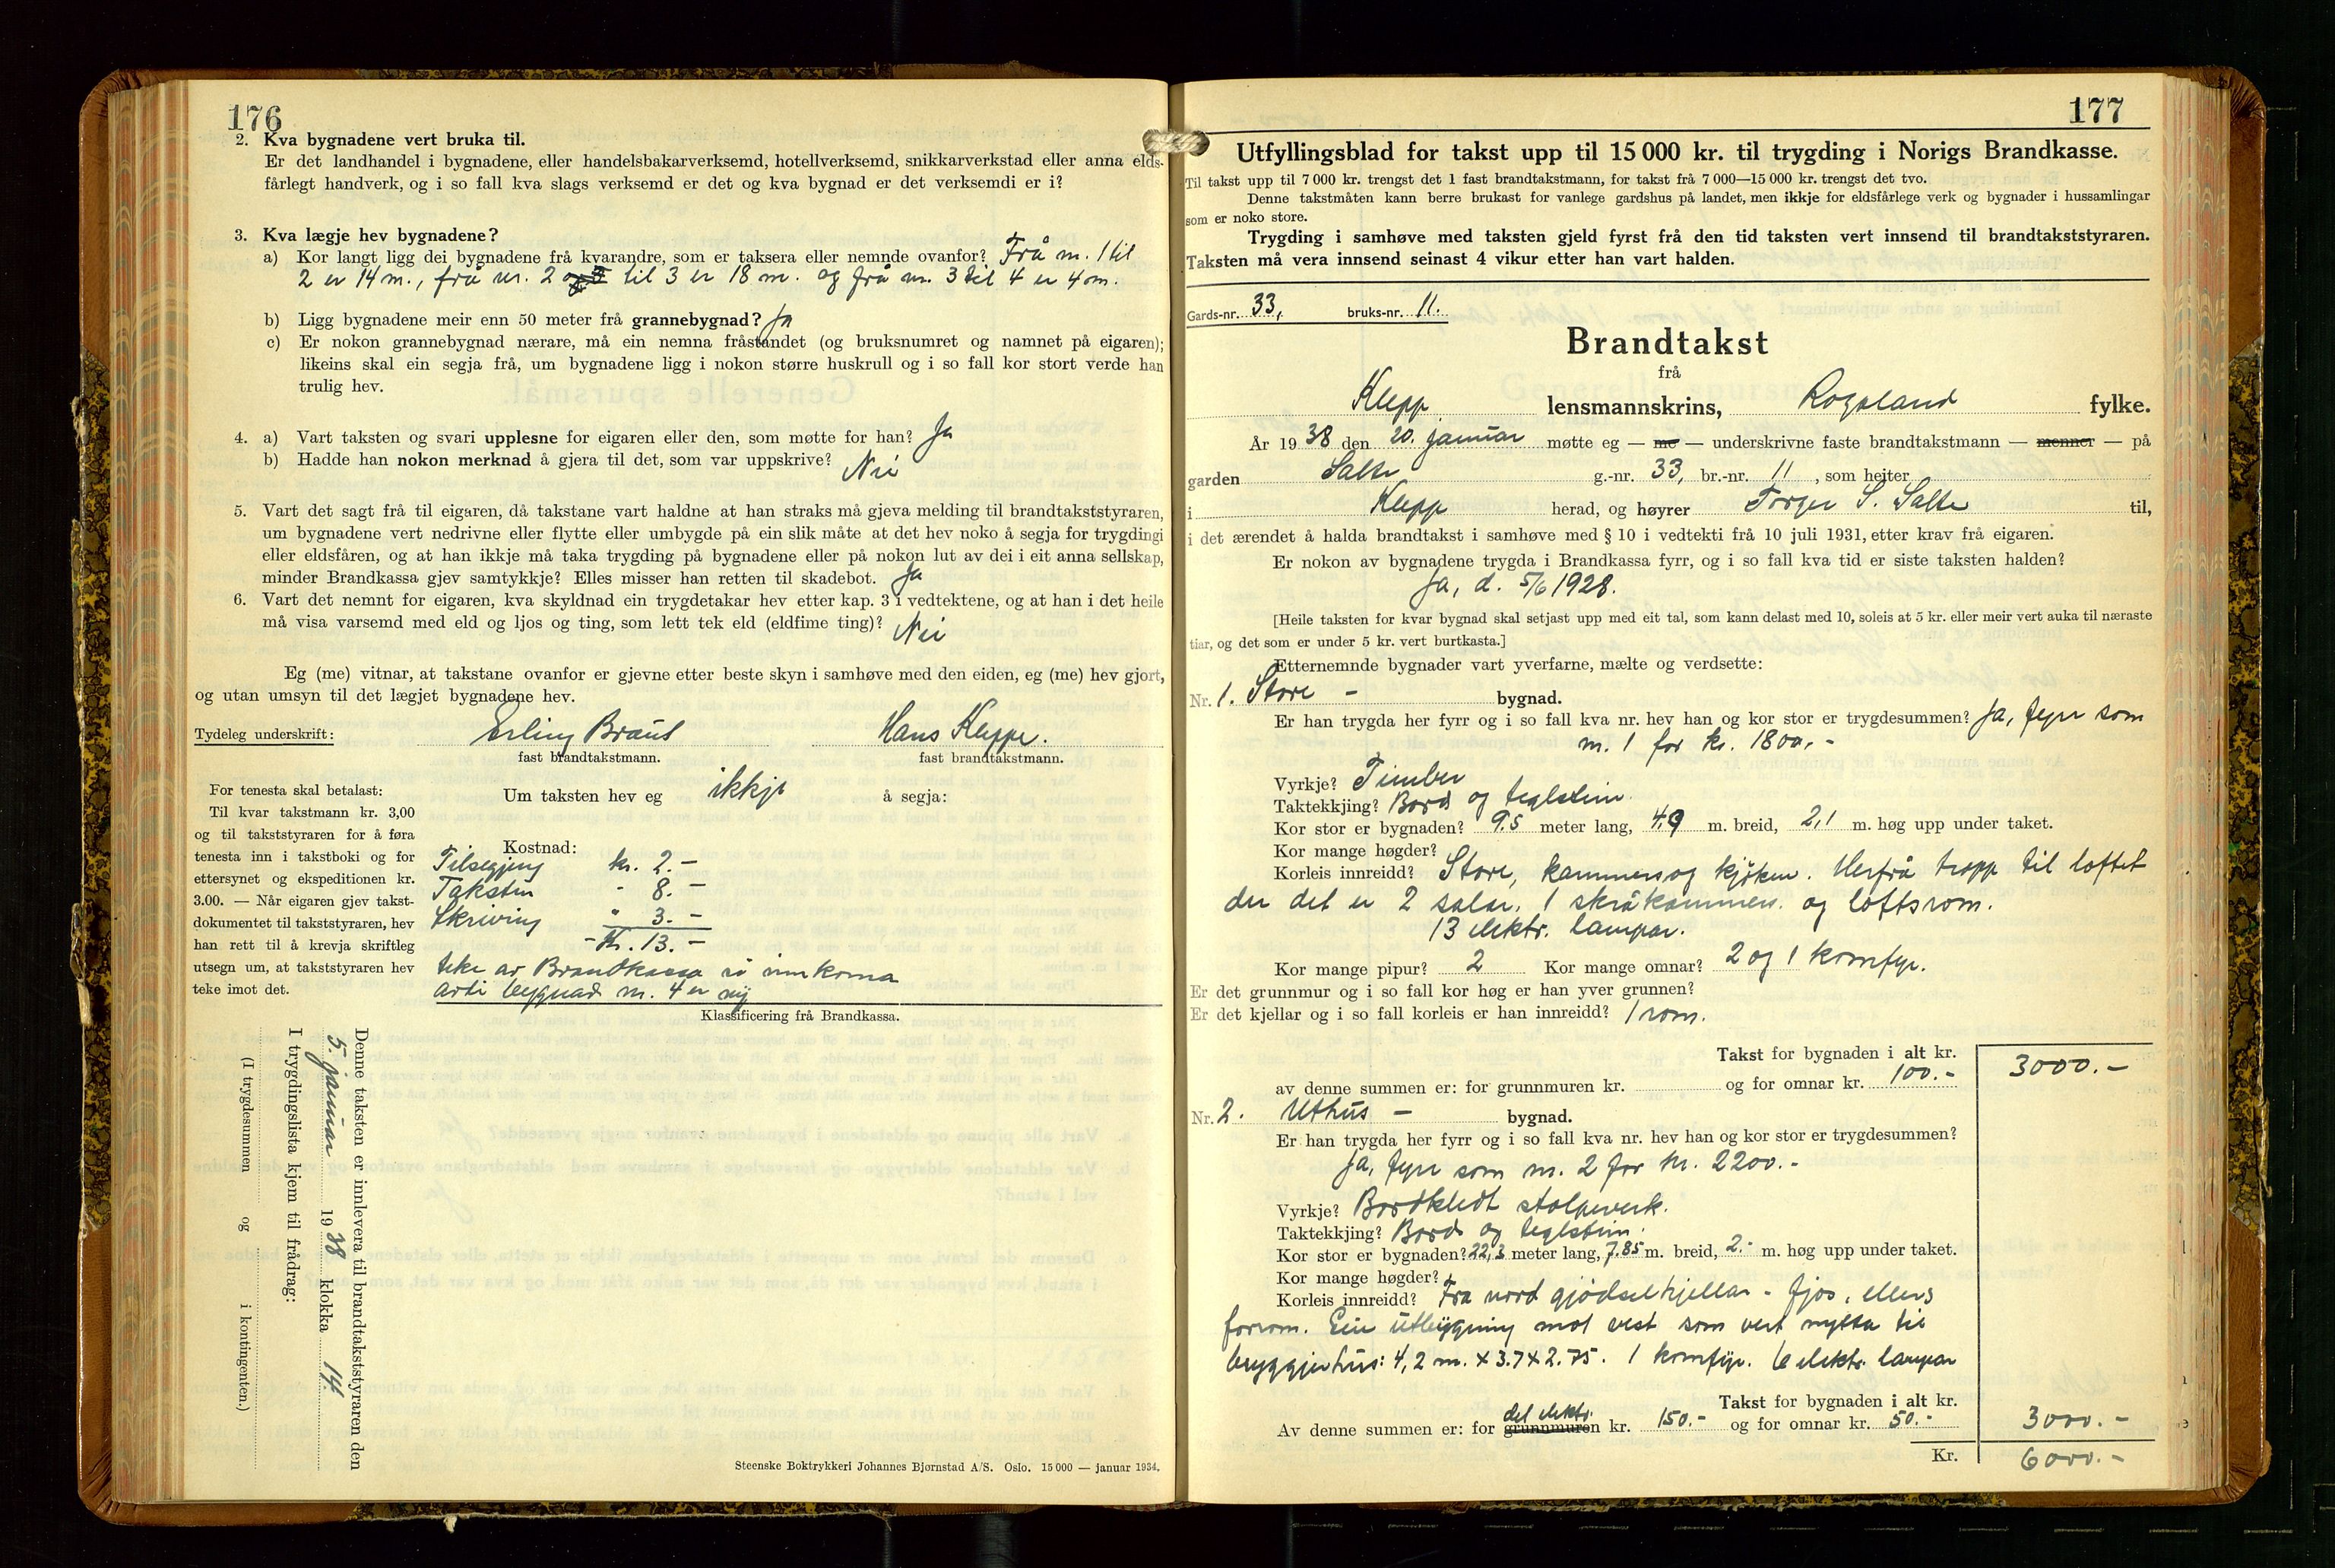 176
2. Kva bygnadene vert bruka til.
Er det landhandel i bygnadene, eller handelsbakarverksemd, hotellverksemd, snikkarverkstad eller anna elds-
fårlegt handverk, og i so fall kva slags verksemd er det og kva bygnad er det verksemdi er i?
3. Kva lægje hev bygnadene?
a) Kor langt ligg dei bygnadene frå kvarandre, som er taksera eller nemnde ovanfor? Frå nr. 1 til
2 er 14 m., frå nr. 2 til 3 er 18 m. og frå nr. 3 til 4 er 4 m.
b) Ligg bygnadene meir enn 50 meter frå grannebygnad? Ja
c) Er nokon grannebygnad nærare, må ein nemna fråstandet (og bruksnumret og namnet på eigaren);
likeins skal ein segja frå, um bygnadene ligg i nokon større huskrull og i so fall kor stort verde han
trulig hev.
4. a) Vart taksten og svari upplesne for eigaren eller den, som møtte for han? Ja
b) Hadde han nokon merknad å gjera til det, som var uppskrive? Nei
5. Vart det sagt frå til eigaren, då takstane vart haldne at han straks må gjeva melding til brandtakststyraren,
um bygnadene vert nedrivne eller flytte eller umbygde på ein slik måte at det hev noko å segja for trygdingi
eller eldsfåren, og at han ikkje må taka trygding på bygnadene eller på nokon lut av dei i eit anna sellskap,
minder Brandkassa gjev samtykkje? Elles misser han retten til skadebot. Ja
6. Vart det nemnt for eigaren, kva skyldnad ein trygdetakar hev etter kap. 3 i vedtektene, og at han i det heile
må visa varsemd med eld og ljos og ting, som lett tek eld (eldfime ting)? Nei
Eg (me) vitnar, at takstane ovanfor er gjevne etter beste skyn i samhøve med den eiden, eg (me) hev gjort,
og utan umsyn til det lægjet bygnadene hev.
Tydeleg underskrift: Erling Braut Hans Kleppe.
fast brandtakstmann. fast brandtakstmann.
For tenesta skal betalast:
Til kvar takstmann kr. 3,00
og til takststyraren for å føra
tenesta inn i takstboki og for
ettersynet og ekspeditionen kr.
3.00. — Når eigaren gjev takst-
dokumentet til takststyraren, hev
han rett til å krevja skriftleg
utsegn um, at takststyraren hev
teke imot det.
Um taksten hev eg ikkje å segja:
Kostnad:
Tilsegjing kr. 2.-
Taksten " 8.-
Skriving " 3.-
Kr. 13.-
teke av Brandkassa si innkoma
avdi bygnad nr. 4 er ny
Klassificering frå Brandkassa.
Denne taksten er innlevera til brandtakststyraren den
5. januar 1938 klokka 14.
I trygdingslista kjem til frådrag:
(I trygdesummen og i kontingenten.)
Steenske Boktrykkeri Johannes Bjørnstad A/S. Oslo. 15 000 — januar 1934.
177
Utfyllingsblad for takst upp til 15 000 kr. til trygding i Norigs Brandkasse.
Til takst upp til 7 000 kr. trengst det 1 fast brandtakstmann, for takst frå 7 000—15 000 kr. trengst det tvo.
Denne takstmåten kann berre brukast for vanlege gardshus på landet, men ikkje for eldsfårlege verk og bygnader i hussamlingar
som er noko store.
Trygding i samhøve med taksten gjeld fyrst frå den tid taksten vert innsend til brandtakststyraren.
Taksten må vera innsend seinast 4 vikur etter han vart halden.
Gards-nr. 33, bruks-nr. 11.
Brandtakst
frå
Klepp lensmannskrins, Rogaland fylke.
År 1938 den 20. januar møtte eg — me — underskrivne faste brandtakstmann — menner — på
garden Salte g.-nr. 33, br.-nr. 11, som heiter
i Klepp herad, og høyrer Torger S. Salte til,
i det ærendet å halda brandtakst i samhøve med § 10 i vedtekti frå 10 juli 1931, etter krav frå eigaren.
Er nokon av bygnadene trygda i Brandkassa fyrr, og i so fall kva tid er siste taksten halden?
Ja, d. 5/6 1928.
[Heile taksten for kvar bygnad skal setjast upp med eit tal, som kann delast med 10, soleis at 5 kr. eller meir vert auka til næraste
tiar, og det som er under 5 kr. vert burtkasta.]
Etternemnde bygnader vart yverfarne, mælte og verdsette:
Nr. 1. Stove - bygnad.
Er han trygda her fyrr og i so fall kva nr. hev han og kor stor er trygdesummen? Ja, fyrr som
nr. 1 for kr. 1800.-
Vyrkje? Timber
Taktekkjing? Bord og teglstein.
Kor stor er bygnaden? 9.5 meter lang, 4.9 m. breid, 2,1 m. høg upp under taket.
Kor mange høgder?
Korleis innreidd? Stove, kammers og kjøken. Herfrå tropp til loftet
der det er 2 salar, 1 skråkammers. og loftsrom.
13 elektr. lampar.
Kor mange pipur? 2 Kor mange omnar? 2 og 1 komfyr.
Er det grunnmur og i so fall kor høg er han yver grunnen?
Er det kjellar og i so fall korleis er han innreidd? 1 rom.
Takst for bygnaden i alt kr. 3000.-
av denne summen er: for grunnmuren kr. og for omnar kr. 100.-
Nr. 2. Uthus - bygnad.
Er han trygda her fyrr og i so fall kva nr. hev han og kor stor er trygdesummen?
Ja, fyrr som nr. 2 for kr. 2200.-
Vyrkje? Bordkledt stolpeverk.
Taktekkjing? Bord og teglstein.
Kor stor er bygnaden? 22,3 meter lang, 7.85 m. breid, 2.- m. høg upp under taket.
Kor mange høgder?
Korleis innreidd? Fra nord gjødselkjellar - fjos, ellers
forrom. Ein utbygning mot vest som vert nytta til
bryggjerhus: 4,2 m. x 3.7 x 2.75. 1 komfyr. 6 elektr. lampar
Takst for bygnaden i alt kr. 3000.-
Av denne summen er: for grunnmuren det elektr. kr. 150.- og for omnar kr. 50.-
Kr. 6000.-